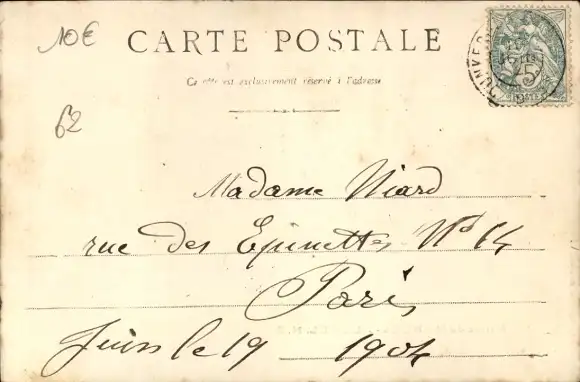 10€
CARTE POSTALE
Ce côté est exclusivement réservé à l'adresse
62
Madame Niard
rue des Epinettes No 64
Paris
Juin le 19 1904